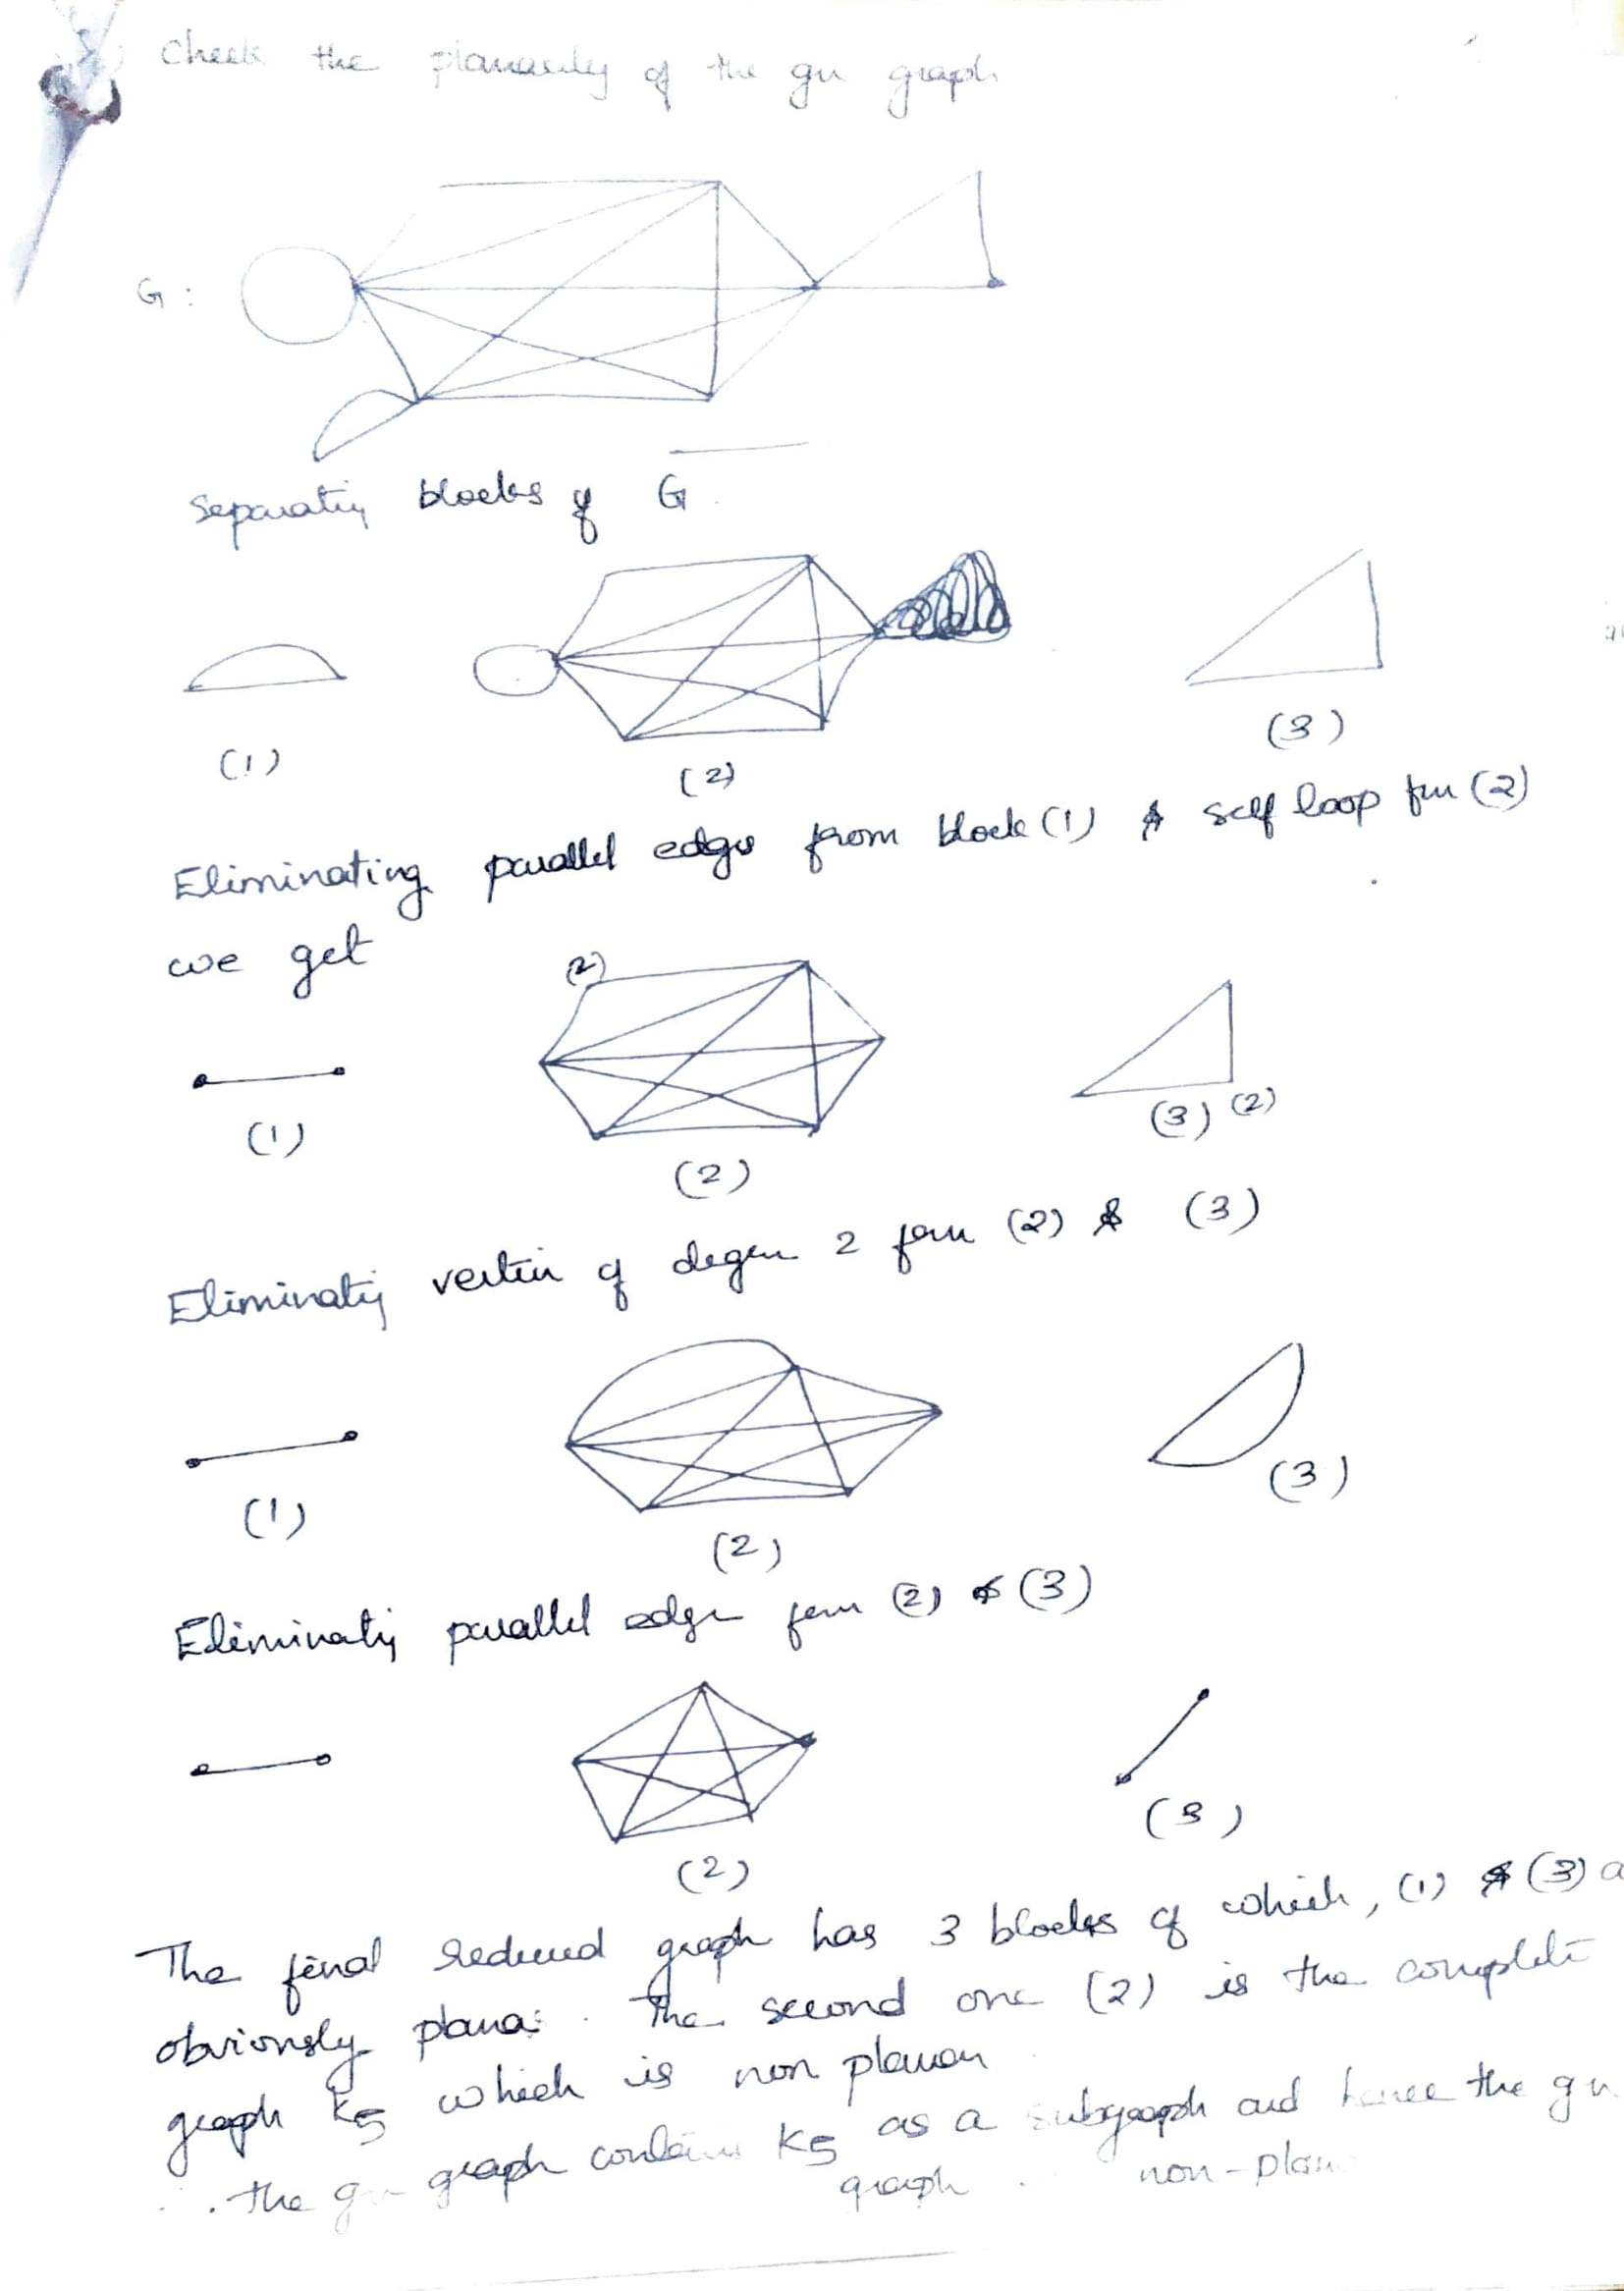 Check the planarity of the gn graph
G :
Separatiy blocks of G
(1)
(2)
(3)
Eliminating parallel edges from block (1) & self loop frm (2)
we get
(2)
(1)
(2)
(3) (2)
Eliminatiy vertix of degree 2 from (2) & (3)
(1)
(2)
(3)
Eliminatiy parallel edge from (2) & (3)
(2)
(3)
The final reduced graph has 3 blocks of which, (1) & (3) a
obviously planar. The second one (2) is the complete
graph K5 which is non planar
∴ the gn graph contains K5 as a subgraph and hence the gn
graph non-plan